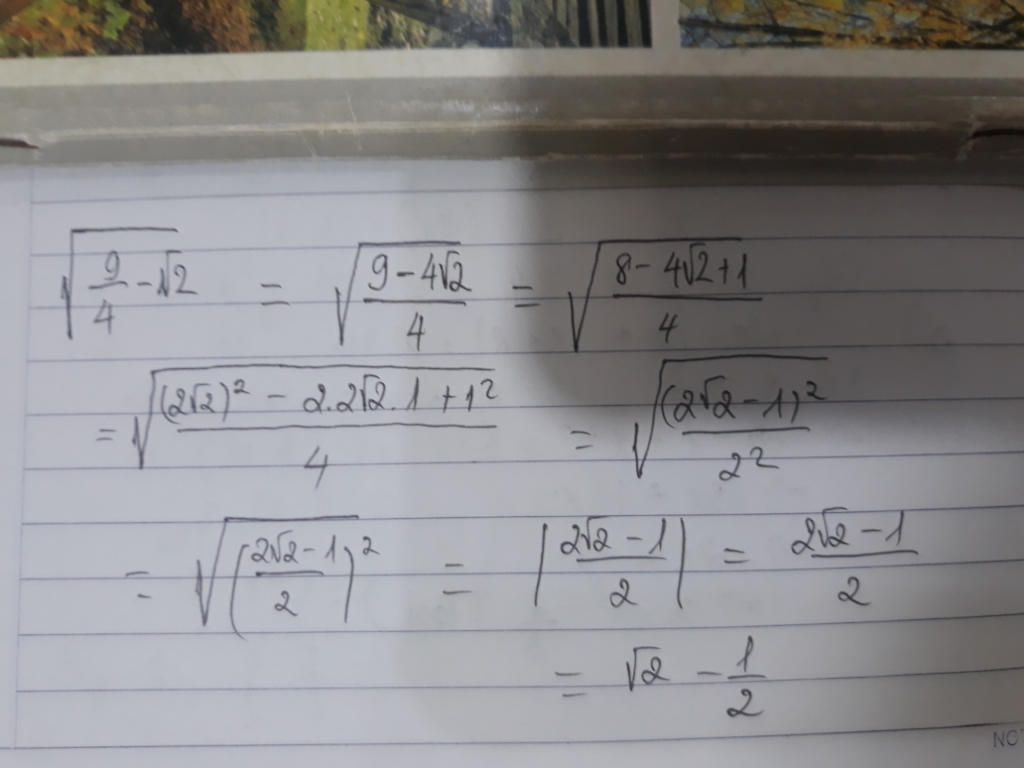 √(9/4 - √2) = √((9 - 4√2)/4) = √((8 - 4√2 + 1)/4)
= √(((2√2)² - 2.2√2.1 + 1²)/4) = √((2√2 - 1)²/2²)
= √(((2√2 - 1)/2)²) = |(2√2 - 1)/2| = (2√2 - 1)/2
= √2 - 1/2